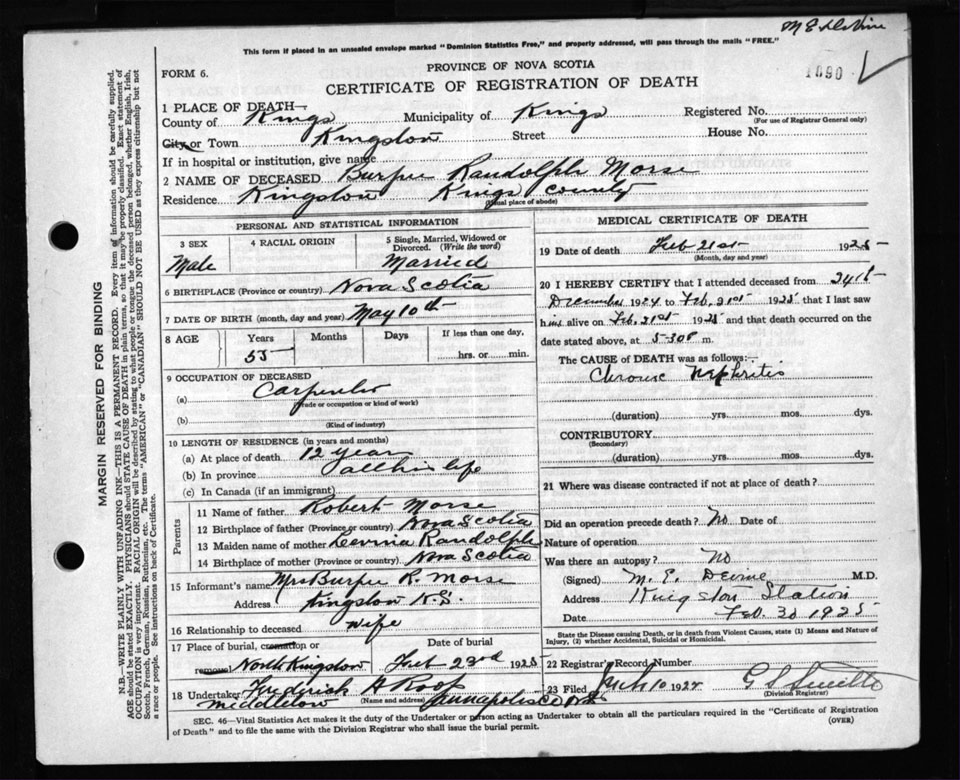 This form if placed in an unsealed envelope marked "Dominion Statistics Free," and properly addressed, will pass through the mails "FREE."
FORM 6.
PROVINCE OF NOVA SCOTIA
CERTIFICATE OF REGISTRATION OF DEATH
1090
1 PLACE OF DEATH—
County of Kings Municipality of Kings Registered No.
(For use of Registrar General only)
City or Town Kingston Street House No.
If in hospital or institution, give name
2 NAME OF DECEASED Burpee Randolph Morse
Residence Kingston Kings County
(Usual place of abode)
PERSONAL AND STATISTICAL INFORMATION
3 SEX 4 RACIAL ORIGIN 5 Single, Married, Widowed or Divorced. (Write the word)
Male Married
6 BIRTHPLACE (Province or country) Nova Scotia
7 DATE OF BIRTH (month, day and year) May 10th
8 AGE Years Months Days If less than one day,
55 hrs. or min.
9 OCCUPATION OF DECEASED
(a) Carpenter
(Trade or occupation or kind of work)
(b)
(Kind of industry)
10 LENGTH OF RESIDENCE (in years and months)
(a) At place of death 12 year
(b) In province all his life
(c) In Canada (if an immigrant)
Parents
11 Name of father Robert Morse
12 Birthplace of father (Province or country) Nova Scotia
13 Maiden name of mother Levinia Randolph
14 Birthplace of mother (Province or country) Nova Scotia
15 Informant's name Mrs Burpee R. Morse
Address Kingston N.S.
16 Relationship to deceased Wife
17 Place of burial, cremation or Date of burial
removal North Kingston Feb 23rd 1925
18 Undertaker Frederick A Roop
(Name and address)
Middleton Annapolis Co N.S.
MEDICAL CERTIFICATE OF DEATH
19 Date of death Feb 21st 1925
(Month, day and year)
20 I HEREBY CERTIFY that I attended deceased from 24th
December 1924 to Feb. 21st 1925 that I last saw
him alive on Feb. 21st 1925 and that death occurred on the
date stated above, at 5-30 m.
The CAUSE OF DEATH was as follows:—
Chronic Nephritis
(duration) yrs. mos. dys.
CONTRIBUTORY
(Secondary)
(duration) yrs. mos. dys.
21 Where was disease contracted if not at place of death?
Did an operation precede death? No Date of
Nature of operation
Was there an autopsy? No
(Signed) M. E. Devine M.D.
Address Kingston Station
Date Feb. 1925
State the Disease causing Death, or in death from Violent Causes, state (1) Means and Nature of Injury, (2) whether Accidental, Suicidal or Homicidal.
22 Registrar's Record Number
23 Filed 10 192
(Division Registrar)
SEC. 46—Vital Statistics Act makes it the duty of the Undertaker or person acting as Undertaker to obtain all the particulars required in the "Certificate of Registration
of Death" and to file the same with the Division Registrar who shall issue the burial permit. (OVER)
MARGIN RESERVED FOR BINDING
N.B.—WRITE PLAINLY WITH UNFADING INK—THIS IS A PERMANENT RECORD. Every item of information should be carefully supplied.
AGE should be stated EXACTLY. PHYSICIANS should STATE CAUSE OF DEATH in plain terms, so that it may be properly classified. Exact statement of
OCCUPATION is very important. RACIAL ORIGIN will be described by stating to what people or tongue the deceased person belonged, whether English, Irish,
Scotch, French, German, Russian, Ruthenian, etc. The terms "AMERICAN" or "CANADIAN" SHOULD NOT BE USED as they express citizenship but not
a race or people. See instructions on back of Certificate.